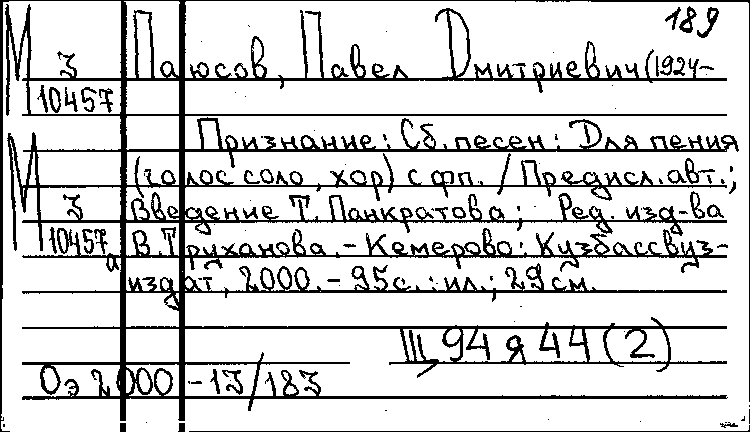 189
М З 10457 Паюсов, Павел Дмитриевич (1924-
Признание: Сб. песен: Для пения
(голос соло, хор) с фп. / Предисл. авт.;
М З 10457а Введение Т. Панкратова; Ред. изд-ва
В. Труханова. - Кемерово: Кузбассвуз-
издат, 2000. - 95с.: ил.; 29 см.
Щ 94 я 44 (2)
Оэ 2000 - 13/183